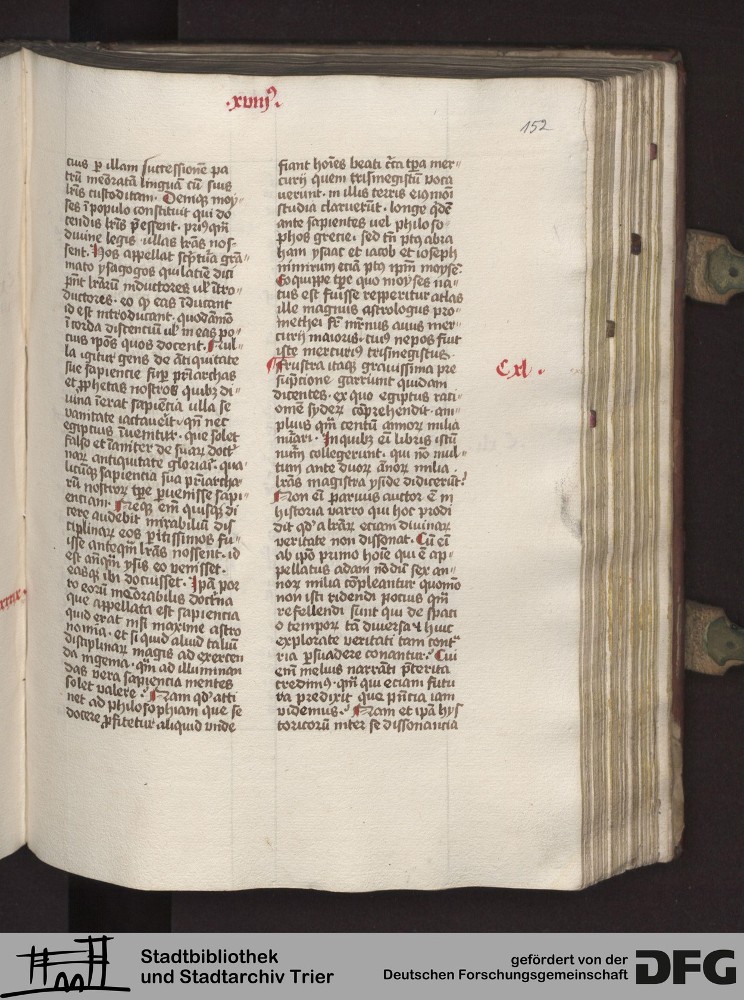 ·xviij⁹·
152
cius ꝑ illam successionē pa
trū meōratā linguā cū suis
lr̄is custoditam · Deniqꝫ moy-
ses ī populo constituit qui do
cendis lr̄is p̄essent · priusqm̄
diuine legis ullas lr̄as nos-
sent · Hos appellat sc̄ptura grā-
mato ysagogos qui latine dici
pn̄t lr̄arū inductores ul̓ ītro-
ductores · eo ꝙ eas īducant
id est introducant · quodāmō
ī corda discentiū ul̓ in eas po-
cius ip̄os quos docent · Nul-
la igitur gens de ātiquitate
sue sapiencie suꝑ pr̄iarchas
et ꝓphetas nostros quibꝫ di-
uina īerat sapiencia ulla se
vanitate iactauerit · qn̄ nec
egiptus īuenitur · que solet
falso et ināiter de suaꝝ doct̓
naꝝ antiquitate gloriari · qua-
licūqꝫ sapiencia sua pr̄iarcha-
rū nostroꝝ tꝑe p̄uenisse sapi-
entiam · Neqꝫ em̄ quisqꝫ di
cere audebit mirabiliū dis
ciplinaꝝ eos ꝑitissimos fu-
isse anteqm̄ lr̄as nossent · id
est anq̄m ysis eo venisset ·
easqꝫ ibi docuisset · Ip̄a por
ro eorū meōrabilis doct̓na
que appellata est sapiencia
quid erat nisi maxime astro
nomia · et si quid aliud taliū
disciplinaꝝ magis ad exercen
da ingenia · qm̄ ad illuminan
das vera sapiencia mentes
solet valere · Nam qd̓ atti
net ad philosophiam que se
docere ꝓfitetur aliquid unde
fiant hoīes beati cīrca tꝑa mer-
curij quem trismegistū voca
uerunt · in illis terris eiꝰmōi
studia claruerūt · longe qd̓ē
ante sapientes vel philoso-
phos grecie · sed tn̄ pꝰ abra
ham ysaac et iacob et ioseph
nimirum etiā pꝰ ip̄m moyse͛ ·
Eo quippe tꝑe quo moyses na-
tus est fuisse repperitur atlas
ille magnus astrologus pro-
methei fr̄ mr̄nus auus mer-
curij maioris · cuiꝰ nepos fuit
iste mercuriꝰ trismegistus ·
Frustra itaqꝫ grauissima pre
sūpcione garriunt quidam
dicentes · ex quo egiptus rati-
onē sydeꝝ cōprehendit · am-
plius qm̄ centū annoꝝ milia
nūari · In quibꝫ em̄ libris istū
num̄ collegerunt · qui nō mul-
tum ante duoꝝ ānoꝝ milia ·
lr̄as magistra yside didicerūt ·
Non em̄ paruus auctor ē in
historia varro qui hoc prodi
dit qd̓ a lr̄aꝝ eciam diuinaꝝ
veritate non dissonat · Cū em̄
ab ip̄o primo hoīe qui ē ap-
pellatus adam nōdū sex an-
noꝝ milia cōpleantur quomō
non isti ridendi pocius qm̄
refellendi sunt qui de spaci
o tempoꝝ tā diuersa et huic
explorate veritati tam cont̓
ria ꝑsuadere conantur · Cui
em̄ melius narrāti p̄terita
credimꝰ · qm̄ qui eciam futu
ra predixit que p̄ncia iam
videmus · Nam et ip̄a hys
toricorū inter se dissonancia
Cxl ·
Stadtbibliothek
und Stadtarchiv Trier
gefördert von der
Deutschen Forschungsgemeinschaft
DFG